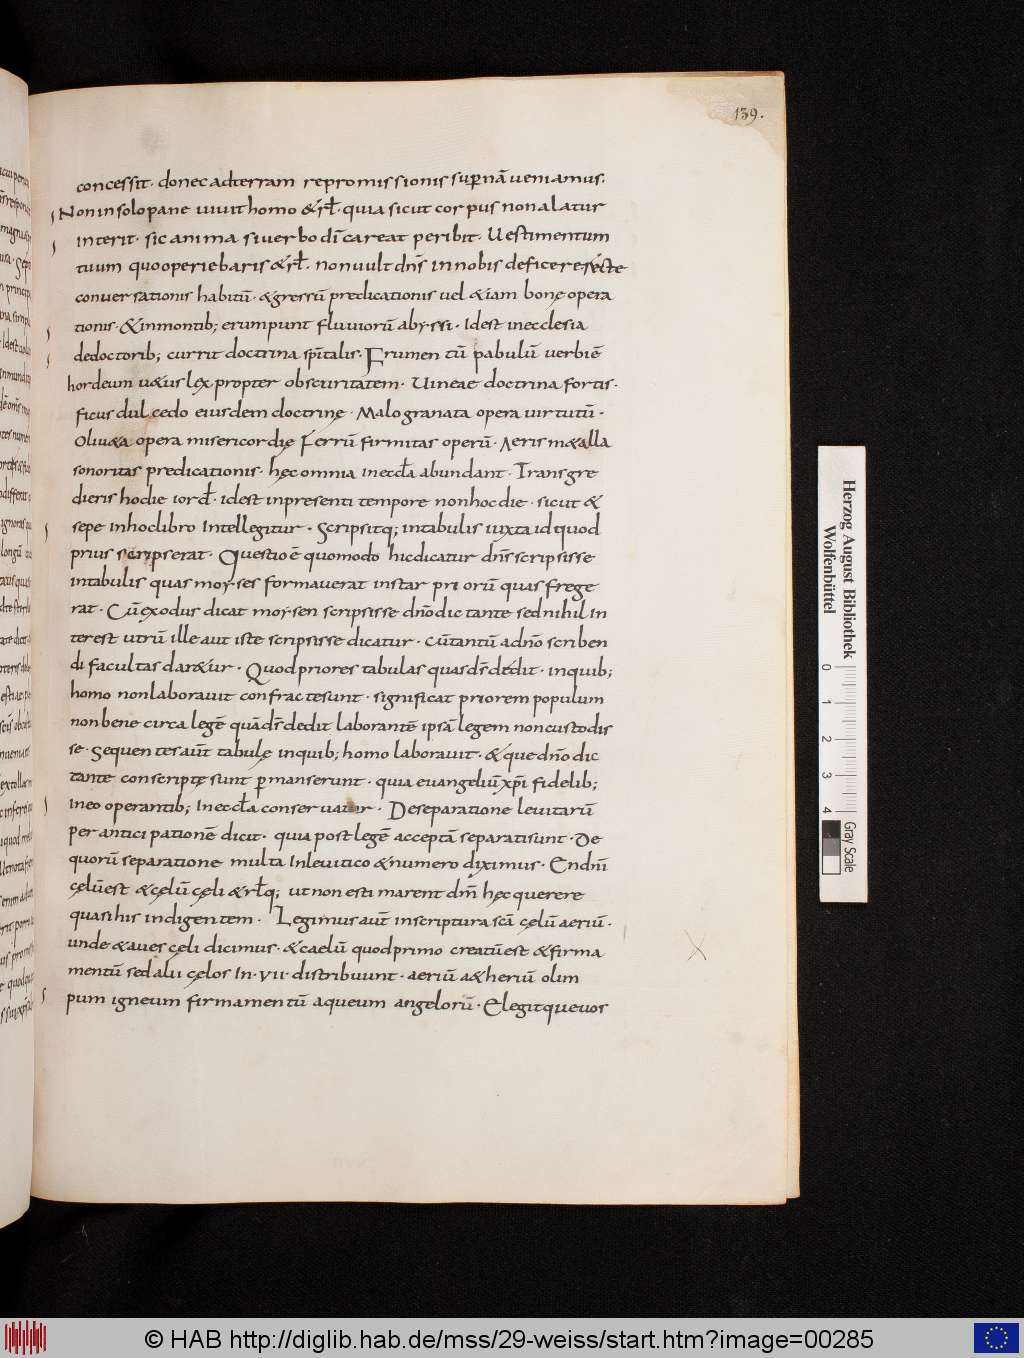 139.
concessit· donec adterram repromissionis sup̄nā ueniamus.
Non insolo pane uiuit homo &rł· quia sicut corpus non alatur
interit· sic anima siuerbo dī careat peribit· Uestimentum
tuum quo operiebaris &rł· non uult dn̄s innobis deficere recte
conuersationis habitū· &gressū predicationis uel &iam bonę opera
tionis· &inmontib; erumpunt fluuiorū abyssi· Idest inecclesia
dedoctorib; currit doctrina sp̄italis· Frumentū pabulū uerbi ē
hordeum u&us lex propter obscuritatem· Uineae doctrina fortis·
ficus dulcedo eiusdem doctrinę· Malogranata opera uirtutū·
Oliu&a opera misericordię Ferrū firmitas operū· Aeris m&alla
sonoritas predicationis· hęc omnia ineccła abundant· Transgre
dieris hodie iord· idest inpresenti tempore non hoc die· sicut &
sepe inhoclibro Intellegitur· Scripsitq; intabulis iuxta id quod
prius scripserat· Questio ē quomodo hic dicatur dn̄s scripsisse
intabulis quas moyses formauerat instar priorū quas frege
rat· Cū exodus dicat moysen scripsisse dn̄o dictante sed nihil in
terest utrū ille aut iste scripsisse dicatur· cū tantū adn̄o scriben
di facultas dar&ur· Quod priores tabulas quas ds̄ dedit· inquib;
homo non laborauit confractesunt· significat priorem populum
non bene circa legē quā ds̄ dedit laborantē ipsā legem non custodis
se· Sequentes aut̄ tabulę inquib; homo laborauit· &que dn̄o dic
tante conscriptę sunt p̄manserunt· quia euangeliū xp̄i fidelib;
ineo operantib; Ineccła conseruatur· Deseparatione leuitarū
per anticipationē dicit· quia post legē acceptā separati sunt· De
quorū separatione multa Inleuitico &numero diximus· En dn̄i
cęlū est &cęlū cęli &rłq; ut non estimarent dm̄ hęc querere
quasi his indigentem· Legimus aut̄ inscriptura scā cęlū aeriū·
unde &aues cęli dicimus· &caelū quod primo creatū est &firma
mentū sed alii cęlos In·vii· distribuunt· aeriū a&heriū olim
pum igneum firmamentū aqueum angelorū· Elegitque uos
Herzog August Bibliothek
Wolfenbüttel
0 1 2 3 4
Gray Scale
© HAB http://diglib.hab.de/mss/29-weiss/start.htm?image=00285